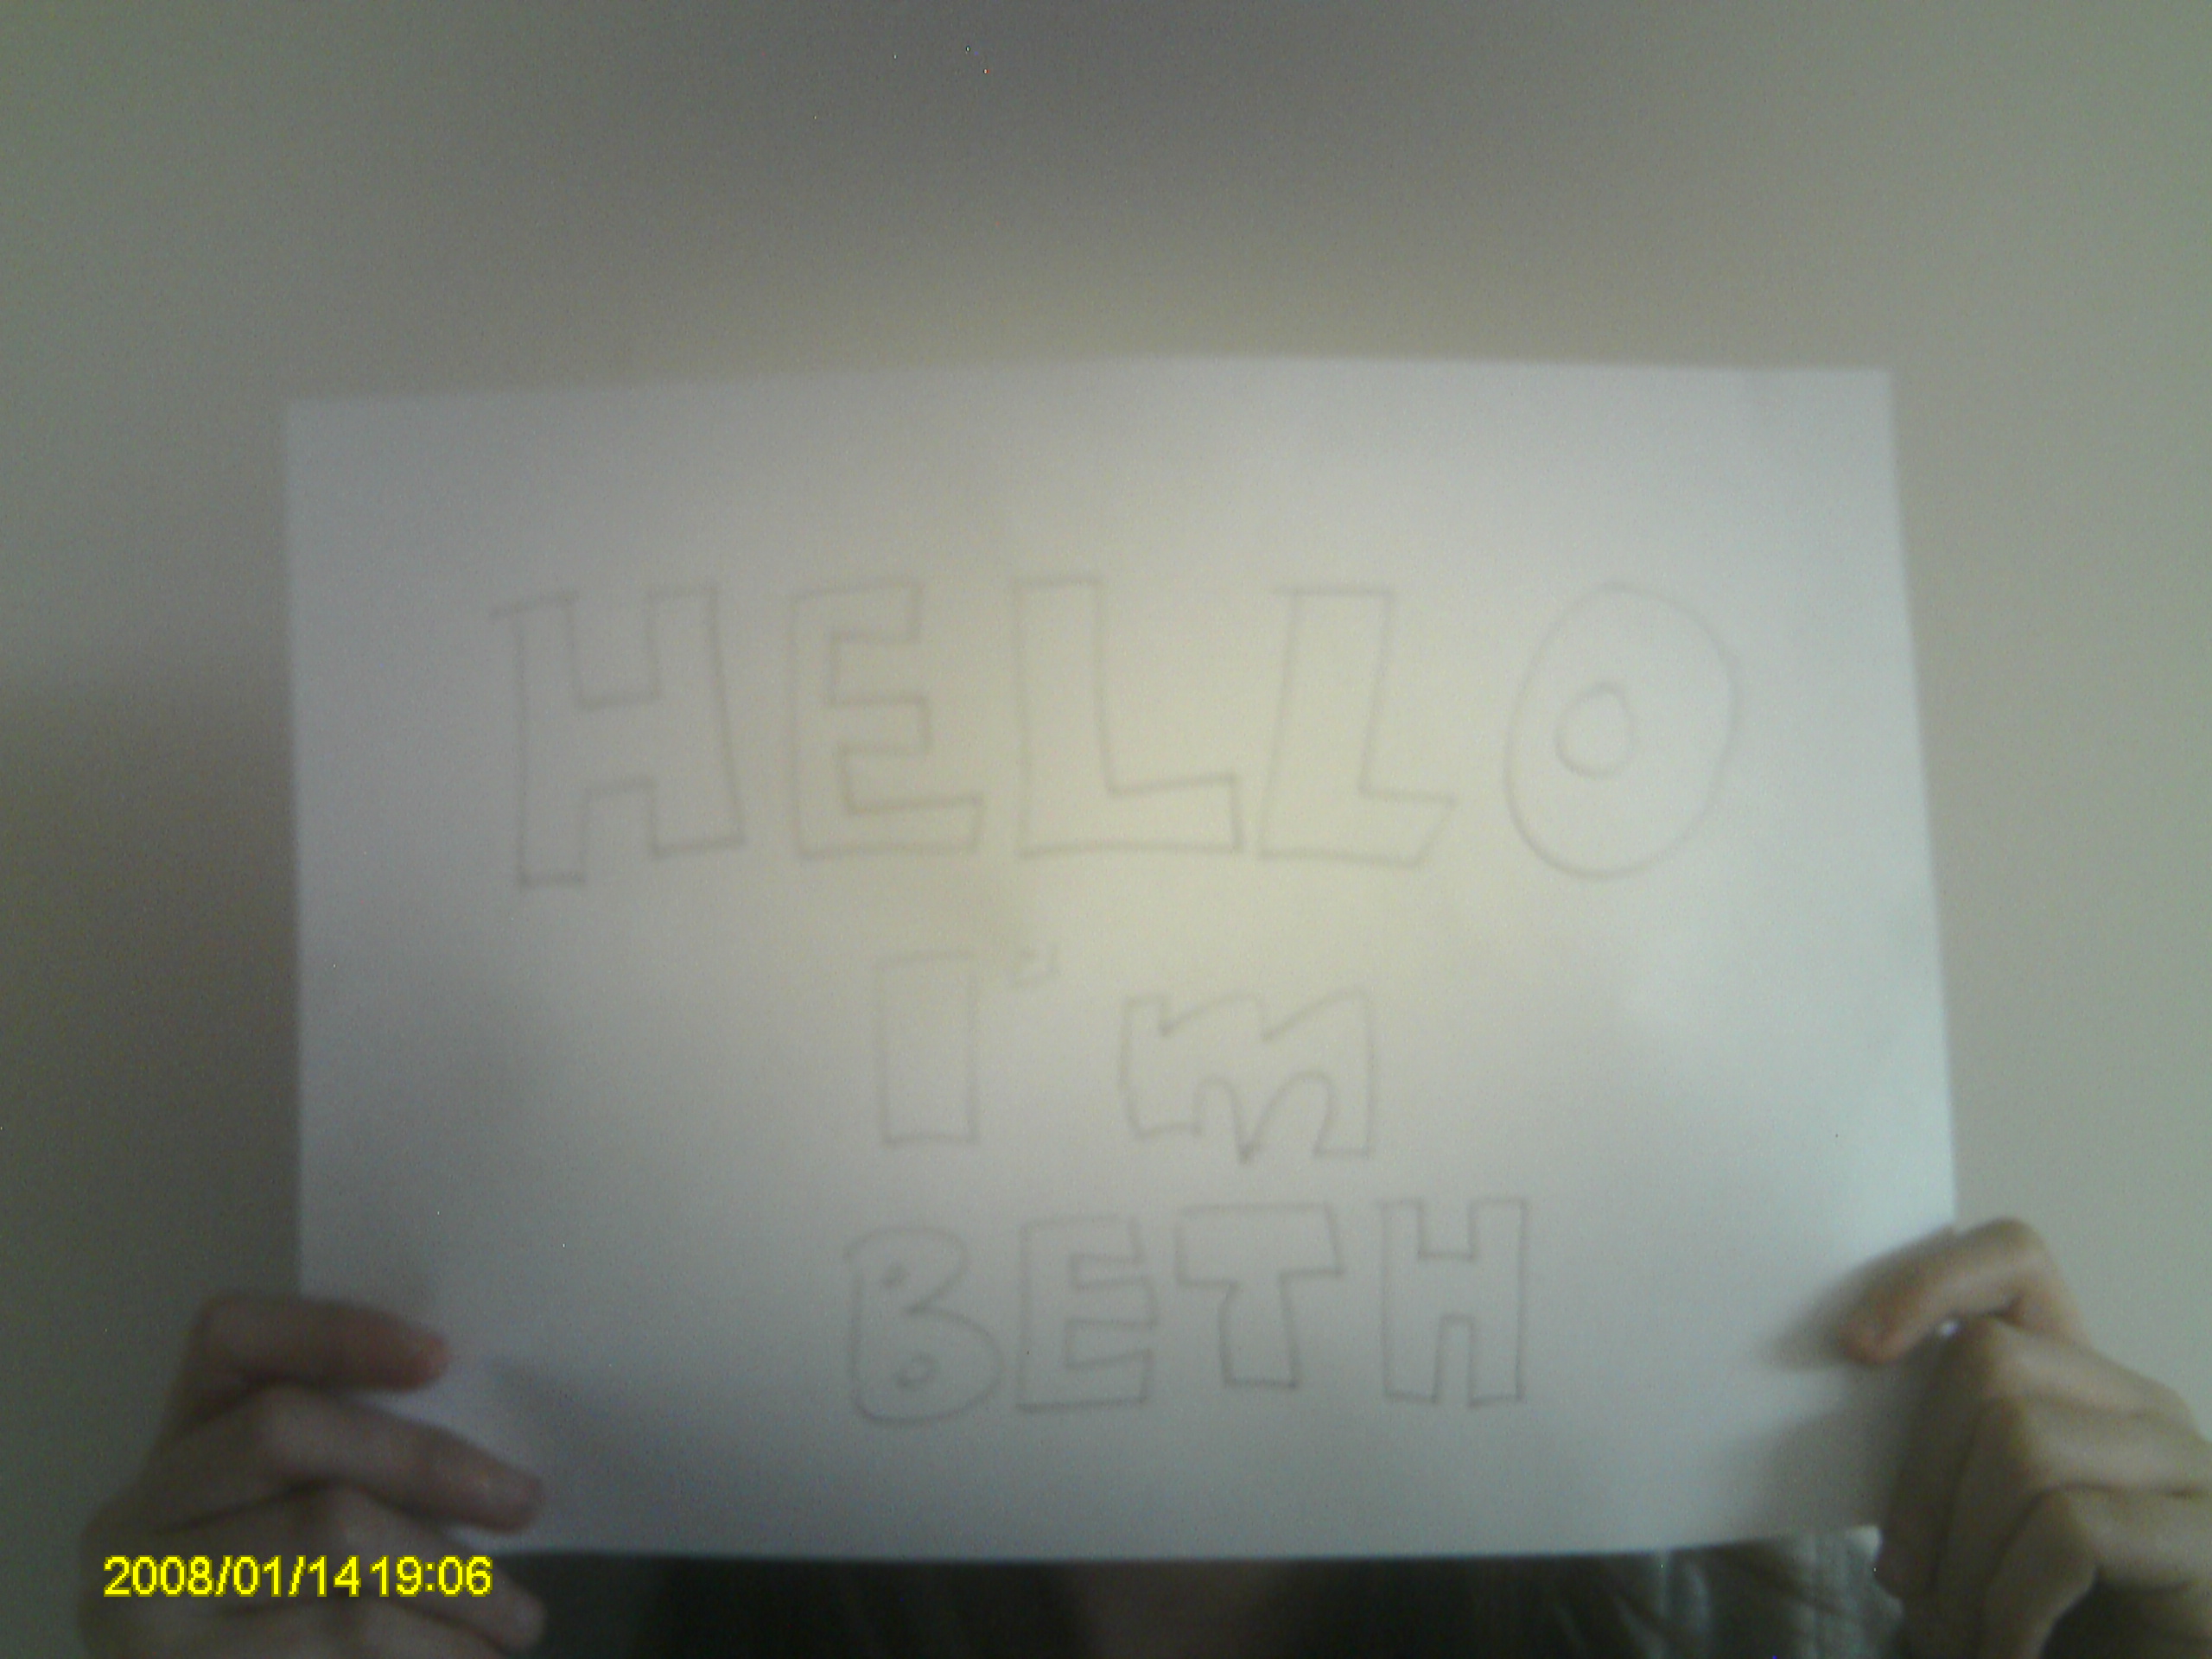 HELLO
I'm
BETH
2008/01/14 19:06